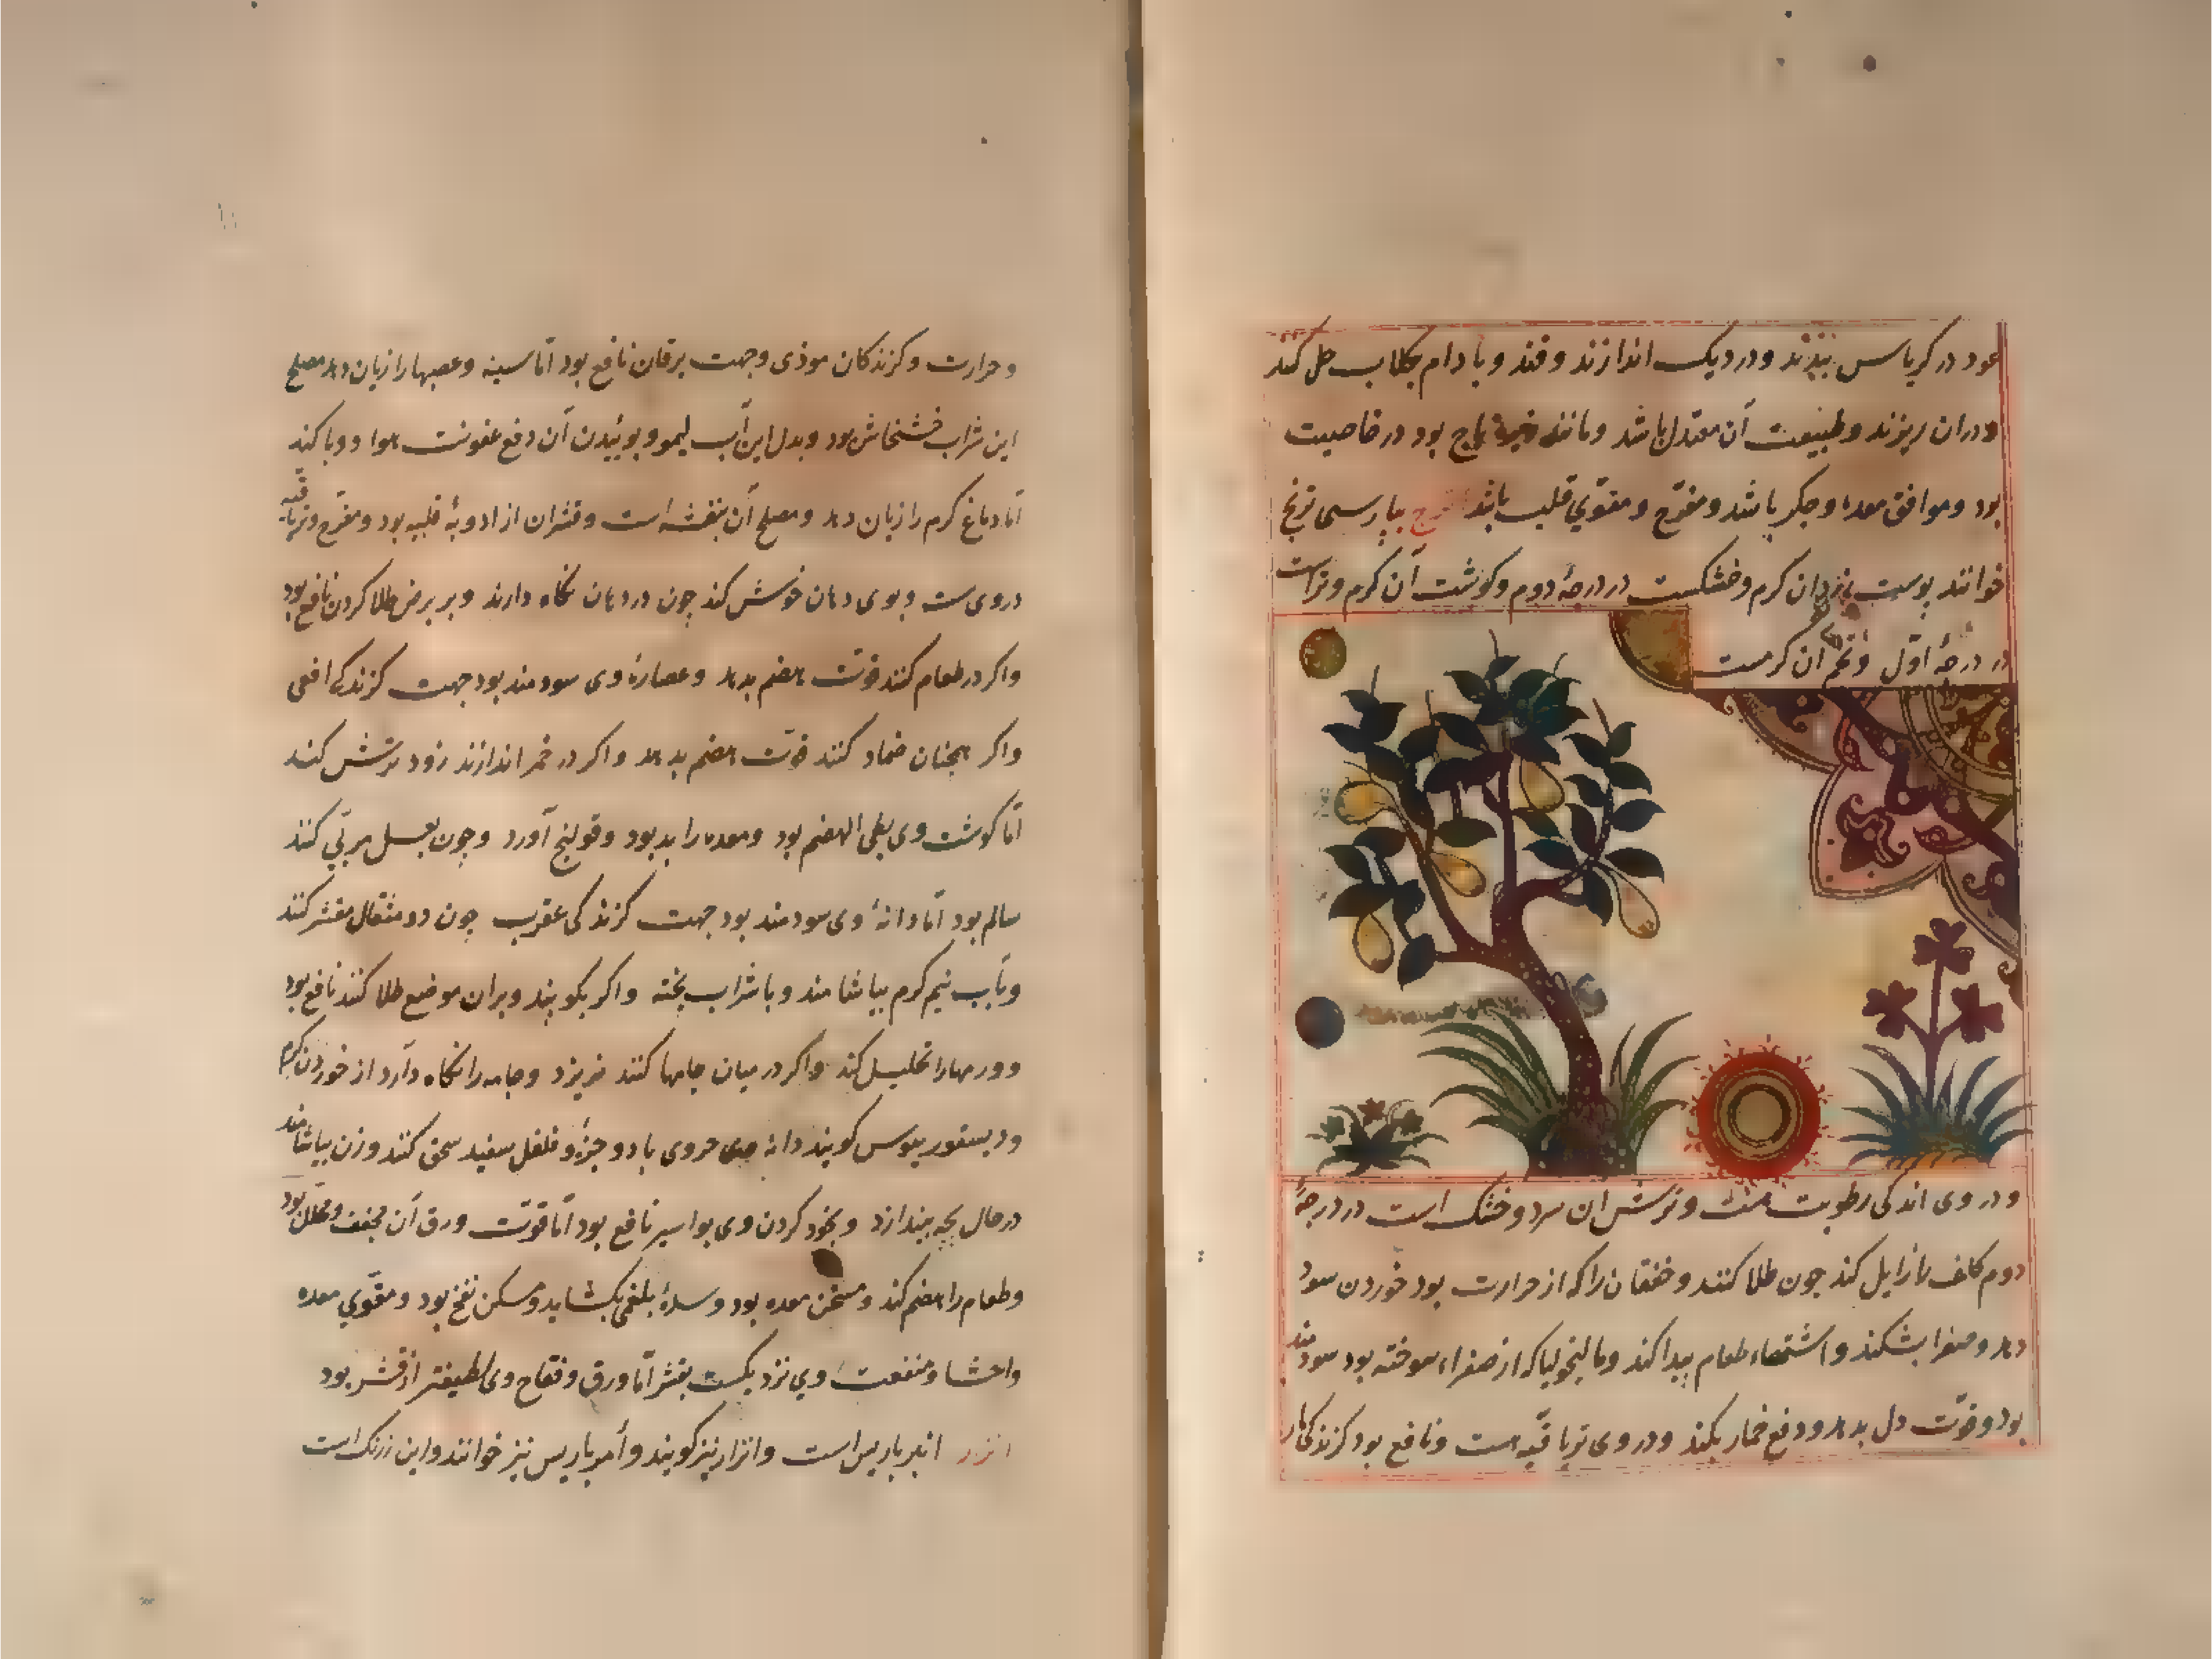 عود در کرباس بندند و در دیک اندازند و قند و بادام بکلاب حل کنند
و دران ریزند و طبیعت آن معتدل باشد و مانند باج بود در خاصیت
بود و موافق معده و جکر باشد و مفرّح و مقوّی قلب باشد اترج بپارسی ترنج
خوانند پوست زردان کرم و خشکست در درجهٔ دوم و کوشت آن کرم و تراست
در درجهٔ اوّل و تخم آن کرمست
و در وی اندکی رطوبت هست و ترشی ان سرد و خشک است در درجهٔ
دوم کلف را زایل کند جون طلا کنند و خفقان را که از حرارت بود خوردن سود
دهد و صفرا بشکند و اشتهاء طعام پیدا کند و مالیخولیا که از صفراء سوخته بود سودمند
بود و قوّت دل بدهد و دفع خمار بکند و در وی تریاقیّه هست و نافع بود کزندکی مار
و حرارت و کزندکان موذی و جهت یرقان نافع بود امّا سینه و عصبها را زیان دهد مصلح
این شراب خشخاش بود و بدل این آب لیمو و بوئیدن آن دفع عفونت هوا و وبا کند
امّا دماغ کرم را زیان دهد و مصلح آن بنفشه است و قشران از ادویهٔ قلبیه بود و مفرّح و تریاقیه
در وی ست و بوی دهان خوش کند جون در دهان نکاه دارند و بر برص طلا کردن نافع بود
واکر در طعام کنند قوّت هضم بدهد و عصارهٔ وی سودمند بود جهت کزندکی افعی
واکر همجنان ضماد کنند قوّت هضم بدهد واکر در خمر اندازند زود ترشش کند
امّا کوشت وی بطی الهضم بود و معده را بد بود و قولنج آورد و جون بعسل مربّی کنند
سالم بود امّا دانهٔ وی سودمند بود جهت کزندکی عقرب جون دو مثقال مقشر کنند
و بآب نیم کرم بیاشامند و با شراب پخته واکر بکوبند و بران موضع طلا کنند نافع بود
و ورمها را تحلیل کند واکر در میان جامها کنند نریزد و جامه را نکاه دارد از خوردن کرم
و دیسقوریدوس کویند دانه وی با دو جزؤ فلفل سفید سحق کنند وزن بیاشامند
در حال بچه بیندازد و بخود کردن وی بواسیر نافع بود امّا قوّت ورق آن مجفف و محلل بود
و طعام را هضم کند و مسخن معده بود و سدهٔ بلغمی بکشاید و مسکن نفخ بود و مقوّی معده
واحشا و منفعت وی نزدیکست بقشر امّا ورق و فقاح وی لطیفتر از قشر بود
انزار انبرباریس است وانزار نیز کویند و أمیرباریس نیز خوانند واین زرنک است